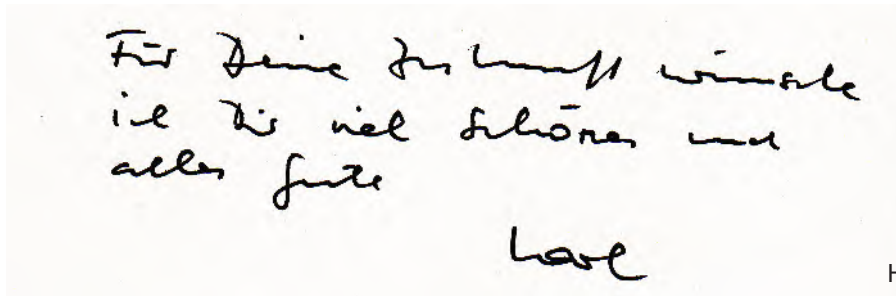 Für Deine Zukunft wünsche
ich Dir viel Schönes und
alles Gute
Karl
H